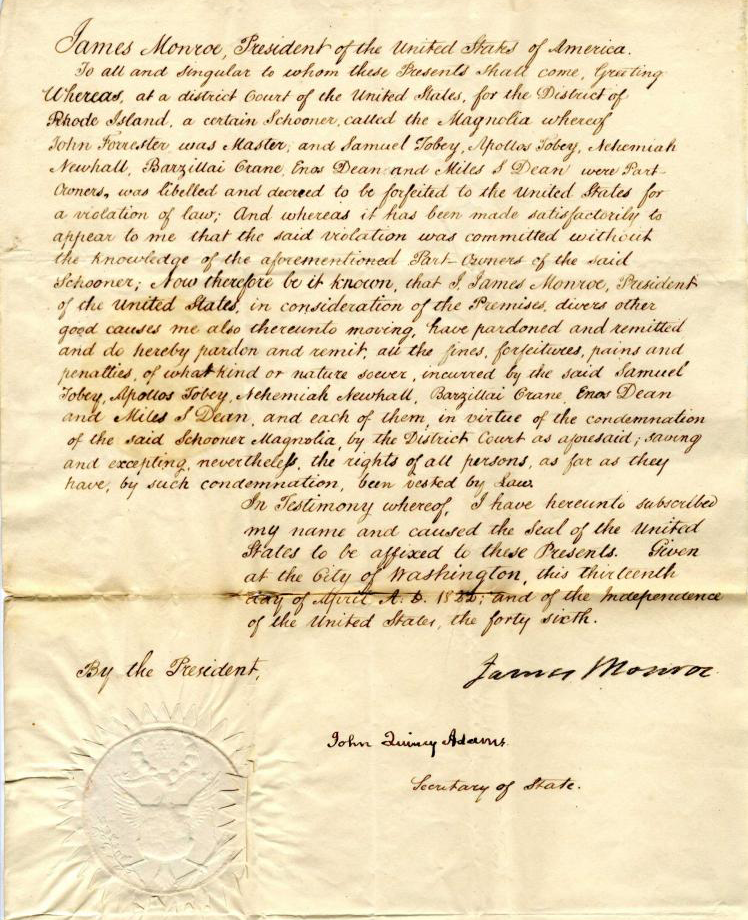 James Monroe, President of the United States of America.
To all and singular to whom these Presents shall come, Greeting
Whereas, at a district Court of the United States, for the District of
Rhode Island, a certain Schooner, called the Magnolia whereof
John Forrester was Master; and Samuel Tobey, Apollos Tobey, Nehemiah
Newhall, Barzillai Crane, Enos Dean and Miles S Dean were Part-
Owners, was libelled and decreed to be forfeited to the United States for
a violation of law; And whereas it has been made satisfactorily to
appear to me that the said violation was committed without
the knowledge of the aforementioned Part-Owners of the said
Schooner; Now therefore be it known, that I, James Monroe, President
of the United States, in consideration of the Premises, divers other
good causes me also thereunto moving, have pardoned and remitted
and do hereby pardon and remit, all the fines, forfeitures, pains and
penalties, of what kind or nature soever, incurred by the said Samuel
Tobey, Apollos Tobey, Nehemiah Newhall, Barzillai Crane, Enos Dean
and Miles S Dean, and each of them, in virtue of the condemnation
of the said Schooner Magnolia, by the District Court as aforesaid; saving
and excepting, nevertheless, the rights of all persons, as far as they
have, by such condemnation, been vested by Law.
In Testimony whereof, I have hereunto subscribed
my name and caused the Seal of the United
States to be affixed to these Presents. Given
at the City of Washington, this thirteenth
day of April A. D. 1822; and of the Independence
of the United States, the forty sixth.
By the President,
James Monroe
John Quincy Adams.
Secretary of State.